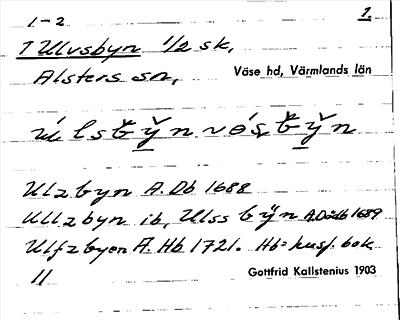 1-2 1.
1 Ulvsbyn 1/2 sk,
Alsters sn,
Väse hd, Värmlands län
Ulzbyn A.Db 1688
Ullzbyn ib, Ulss bÿn A.Dödb 1689
Ulfzbyen A. Hb 1721. Hb = husf. bok
11
Gottfrid Kallstenius 1903